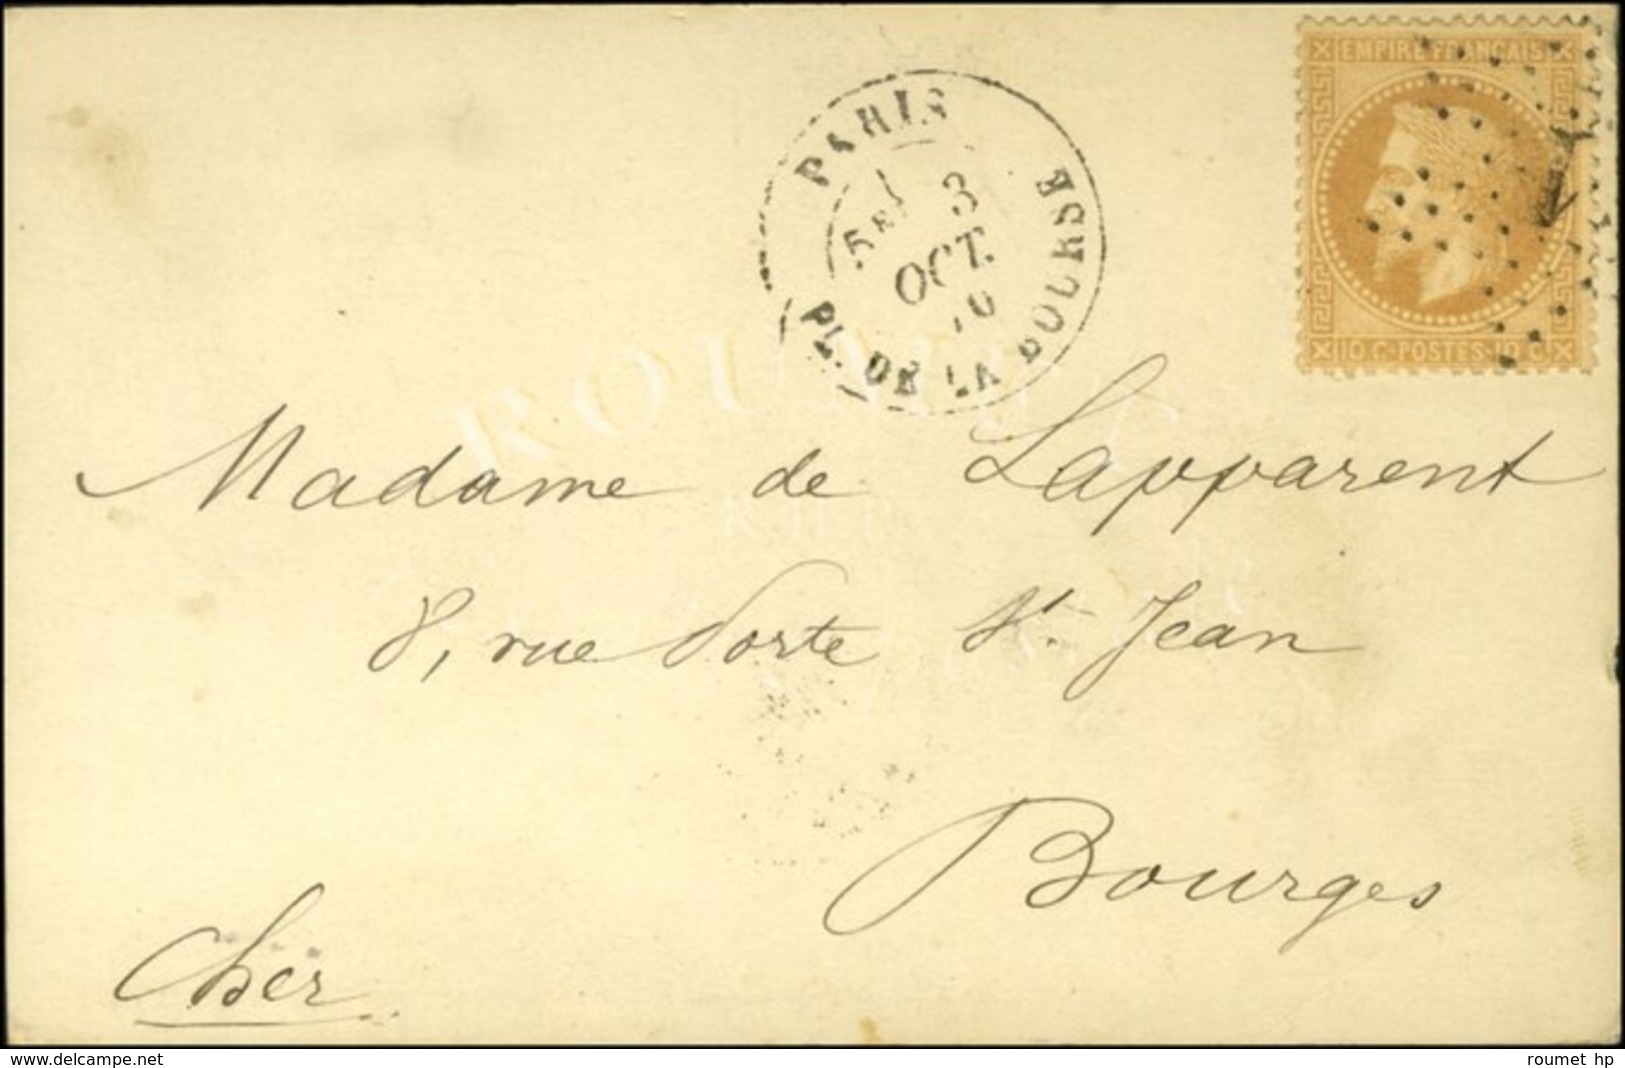 EMPIRE FRANÇAIS
10 C. POSTES 10 C.
PARIS
PL. DE LA BOURSE
3
OCT.
ROUMET
Madame de Lapparent
8, rue Porte St. Jean
Bourges
Cher
www.delcampe.net
roumet hp